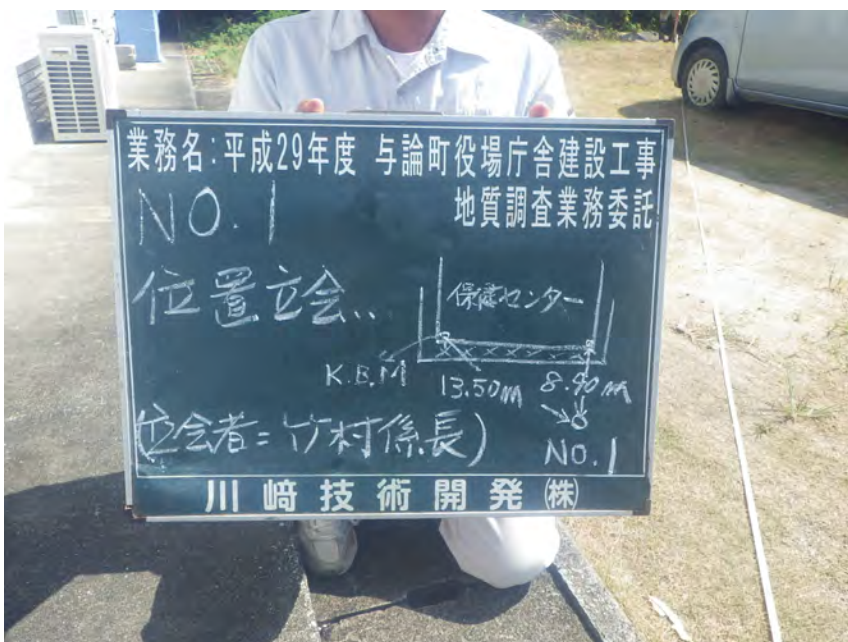 業務名:平成29年度 与論町役場庁舎建設工事
地質調査業務委託
NO.1
位置立会..
保健センター
K.B.M
13.50m 8.90m
NO.1
(立会者=竹村係長)
川﨑技術開発(株)